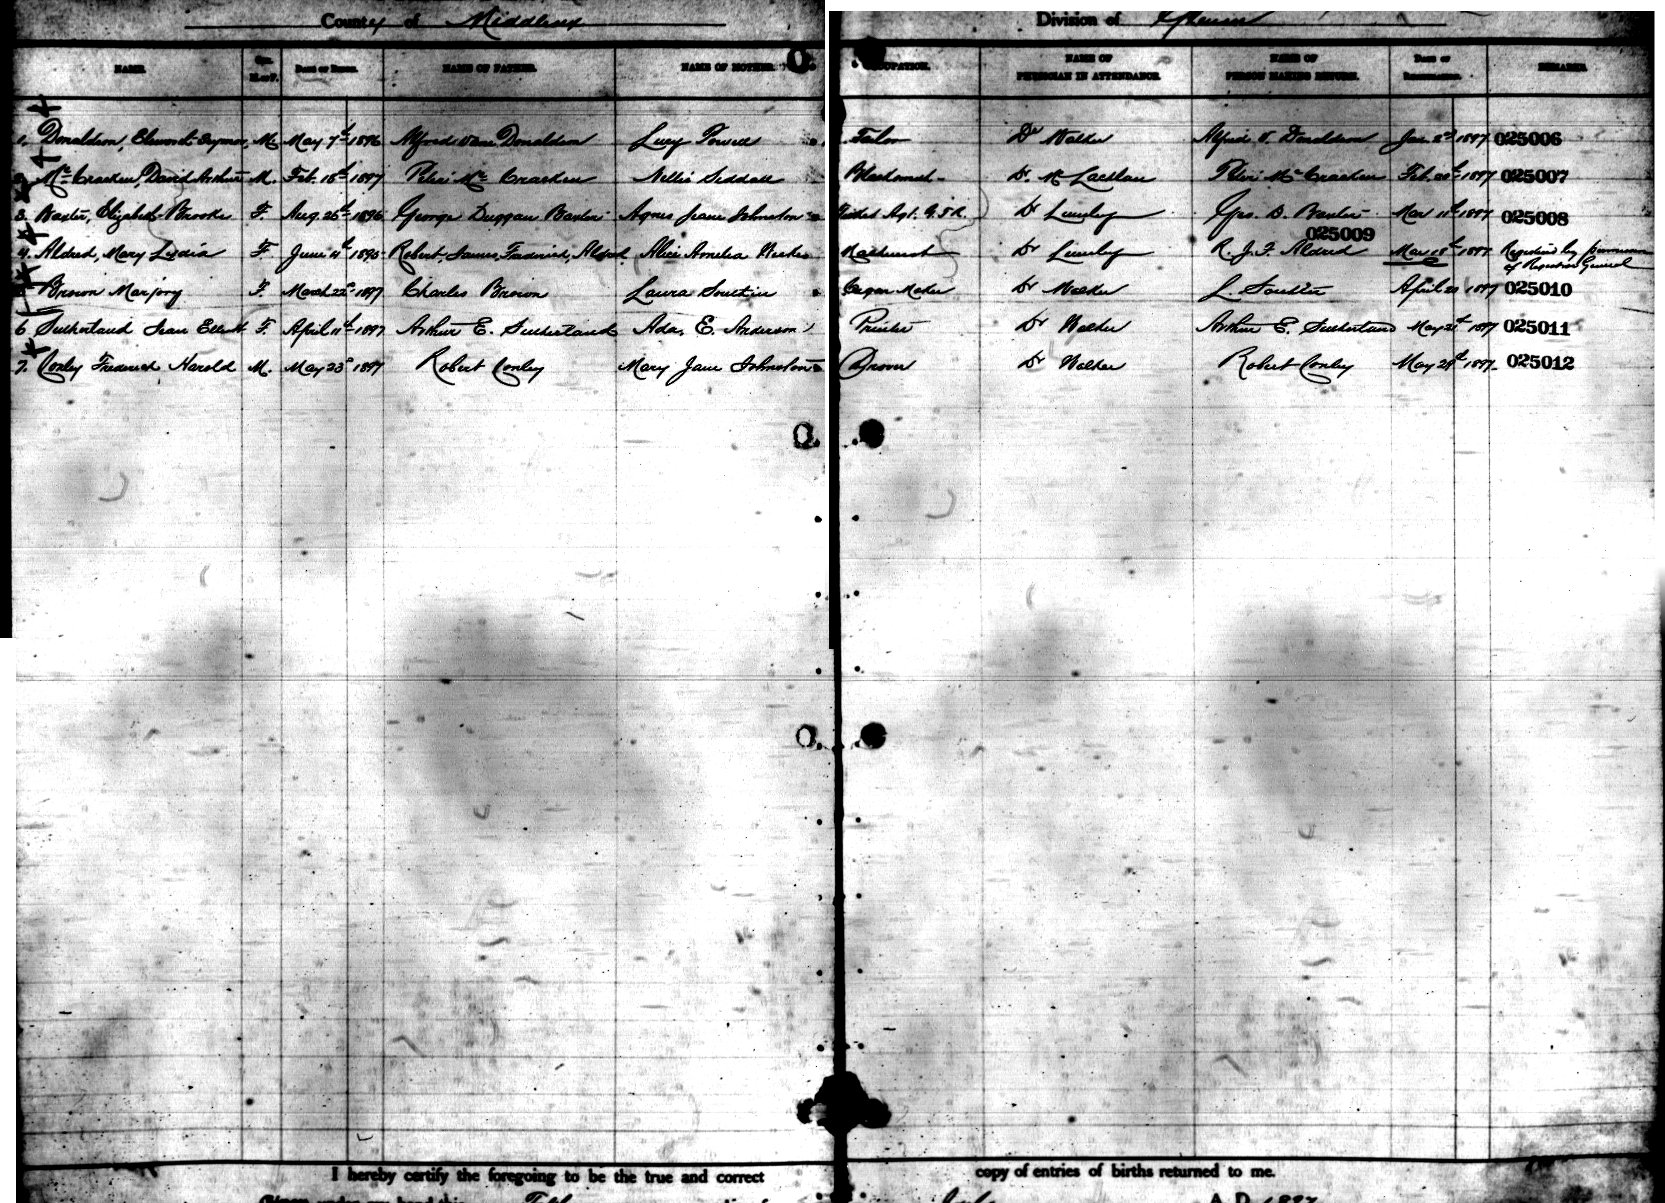 County of Middlesex Division of
NAME. Sex. M. or F. Date of Birth. NAME OF FATHER. NAME OF MOTHER. OCCUPATION. NAME OF PHYSICIAN IN ATTENDANCE. NAME OF PERSON MAKING RETURN. Date of Registration. REMARKS.
1. Donaldson, Seymour, M. May 7th 1896 Alfred Donaldson Lucy Powell Tailor Dr Walker Alfred V. Donaldson Jan 2nd 1897 025006
Mc Cracken, David Arthur M. Feb. 18th 1897 Peter Mc Cracken Nellie Siddall Dr. Mc Lachlan Peter Mc Cracken Feb. 1897 025007
3. Baxter, Elizabeth Brooke F. Aug. 26th 1896 George Duggan Baxter Agnes Jean Johnston Ticket Agt. G.T.R. Dr Lumley Geo. D. Baxter Mar 11th 1897 025008
025009
4. Aldred, Mary Lydia F. June Robert, James, Frederick, Aldred Alice Amelia Machinist Dr Lumley R. J. F. Aldred Mar 18th 1897 Registered by permission
of Registrar General
Brown Marjory F. March 22nd 1897 Charles Brown Laura Cigar Maker Dr Walker L. April 21 1897 025010
6 Sutherland Jean Elliott F. April 11th 1897 Arthur E. Sutherland Ada, E. Anderson Printer Dr Walker Arthur E. Sutherland May 1897 025011
7. Conley Frederick Harold M. May 23rd 1897 Robert Conley Mary Jane Johnston Drover Dr Walker Robert Conley May 28th 1897. 025012
I hereby certify the foregoing to be the true and correct copy of entries of births returned to me.
Given under my hand this A. D. 1897